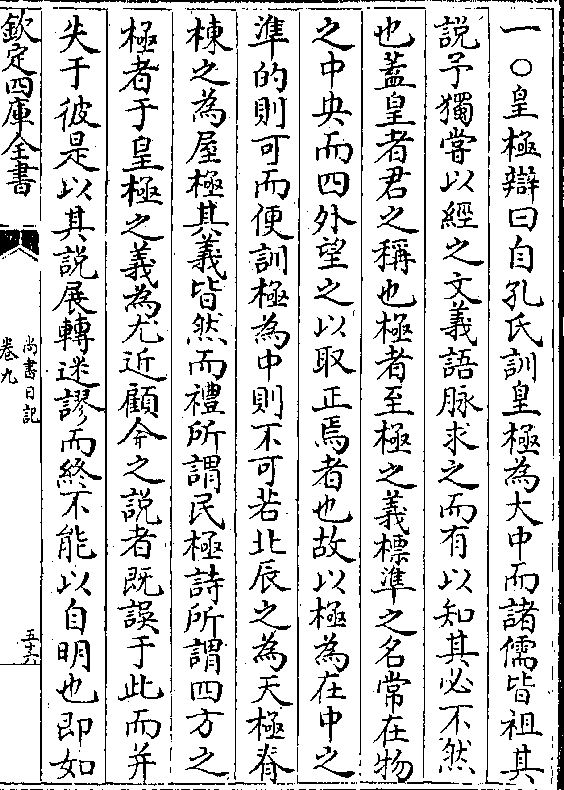 一○皇極辯曰自孔氏訓皇極為大中而諸儒皆祖其
說予獨嘗以經之文義語脉求之而有以知其必不然
也蓋皇者君之稱也極者至極之義標準之名常在物
之中央而四外望之以取正焉者也故以極為在中之
準的則可而便訓極為中則不可若北辰之為天極脊
棟之為屋極其義皆然而禮所謂民極詩所謂四方之
極者于皇極之義為尤近顧今之說者既誤于此而并
失于彼是以其說展轉迷謬而終不能以自明也即如
欽定四庫全書
尚書日記
卷九
五十六